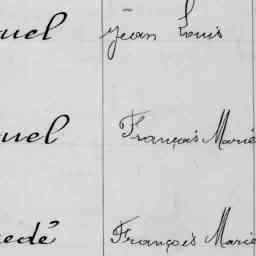 uel Jean Louis
uel François Marie
edé François Marie